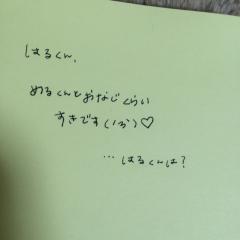 はるくん、
めるくんとおなじくらい
すきです(1ぷ)♡
…はるくんは?